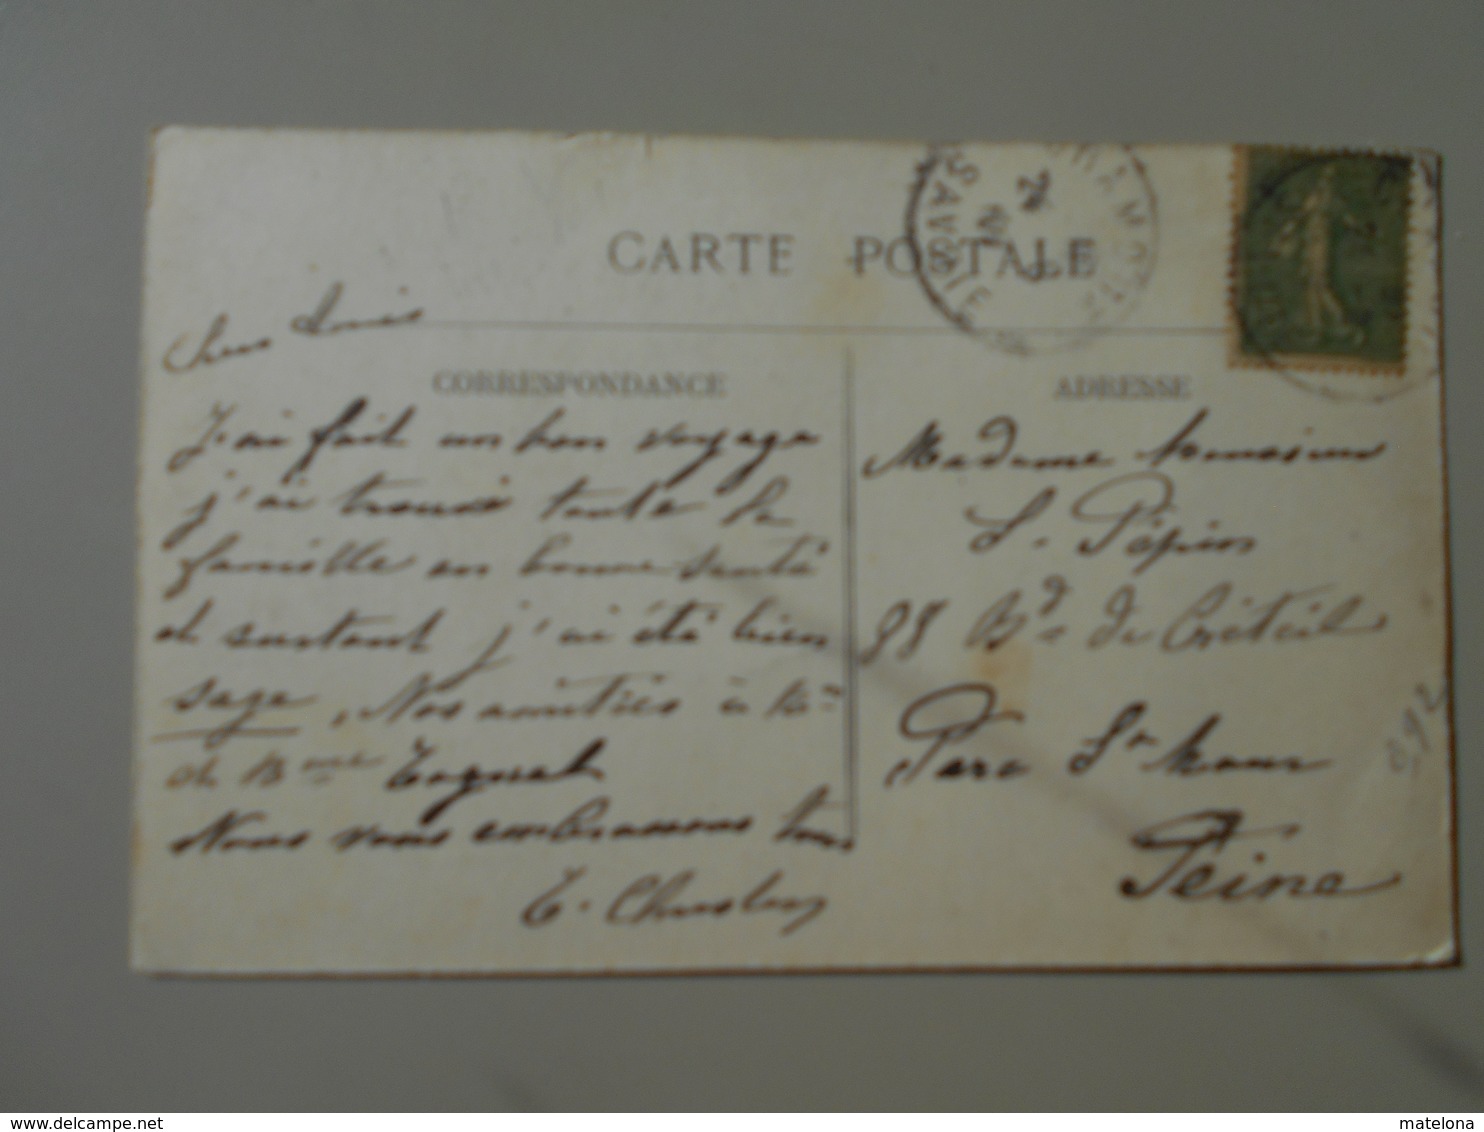 CARTE POSTALE
SAVOIE
Chers Amis
CORRESPONDANCE
J'ai fait un bon voyage
j'ai trouvé toute la
famille en bonne santé
et surtout j'ai été bien
sage. Nos amitiés à Mr
et Mme
Nous vous embrassons tous
ADRESSE
Madame Monsieur
L. Pépin
88 Bd de Créteil
Parc St Maur
Seine
delcampe.net
matelona